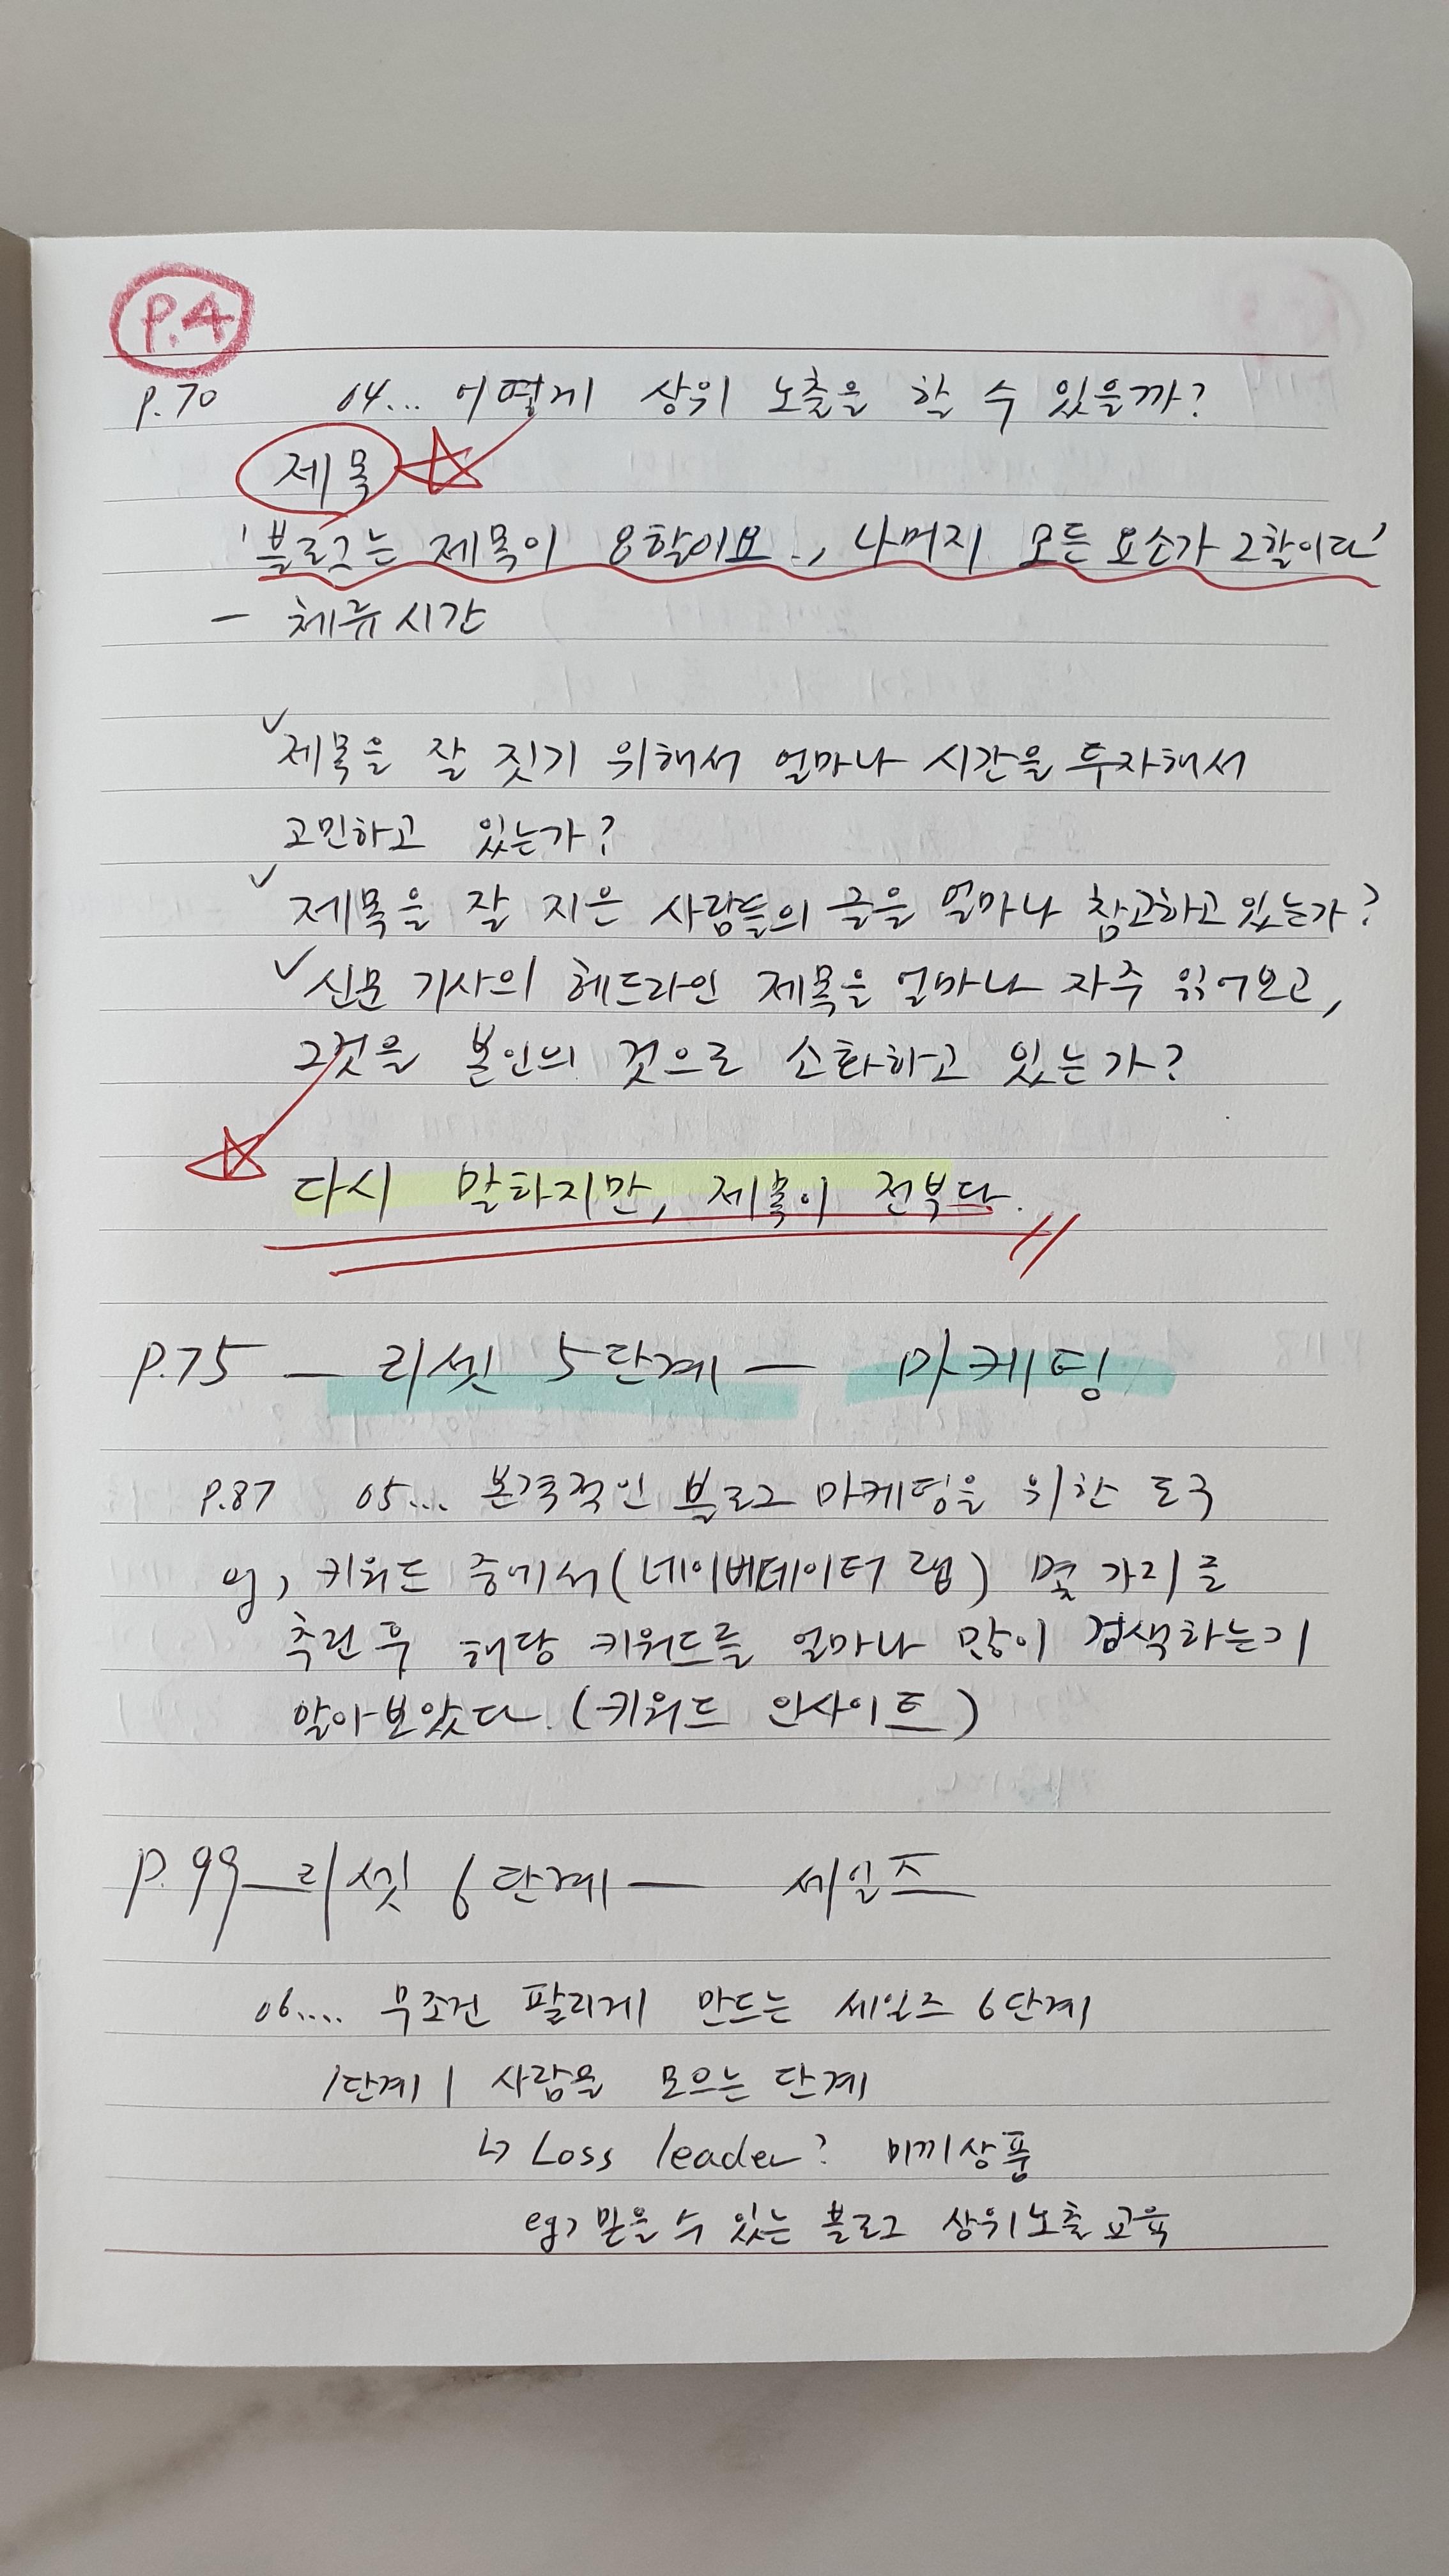 P.4
P.70 04... 어떻게 상위 노출을 할 수 있을까?
제목
'블로그는 제목이 8할이요., 나머지 모든 요소가 2할이다'
- 체류시간
✓제목을 잘 짓기 위해서 얼마나 시간을 투자해서
고민하고 있는가?
✓제목을 잘 지은 사람들의 글을 얼마나 참고하고 있는가?
✓신문 기사의 헤드라인 제목을 얼마나 자주 읽어보고,
그것을 본인의 것으로 소화하고 있는가?
다시 말하지만, 제목이 전부다.
P.75 — 리셋 5단계 — 마케팅
P.87 05... 본격적인 블로그 마케팅을 위한 도구
eg, 키워드 중에서(네이버데이터 랩) 몇 가지를
추린 후 해당 키워드를 얼마나 많이 검색하는지
알아보았다. (키워드 인사이트)
P.99 — 리셋 6단계 — 세일즈
06.... 무조건 팔리게 만드는 세일즈 6단계
1단계 | 사람을 모으는 단계
↳ Loss leader? 미끼상품
eg, 믿을 수 있는 블로그 상위노출 교육